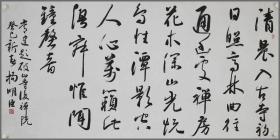 清晨入古寺初
日照高林曲径
通幽處禅房
花木深山光悦
鸟性潭影空
人心萬籁此
俱寂惟闻
鐘磬音
常建题破山寺後禅院
癸巳新春楊明臣